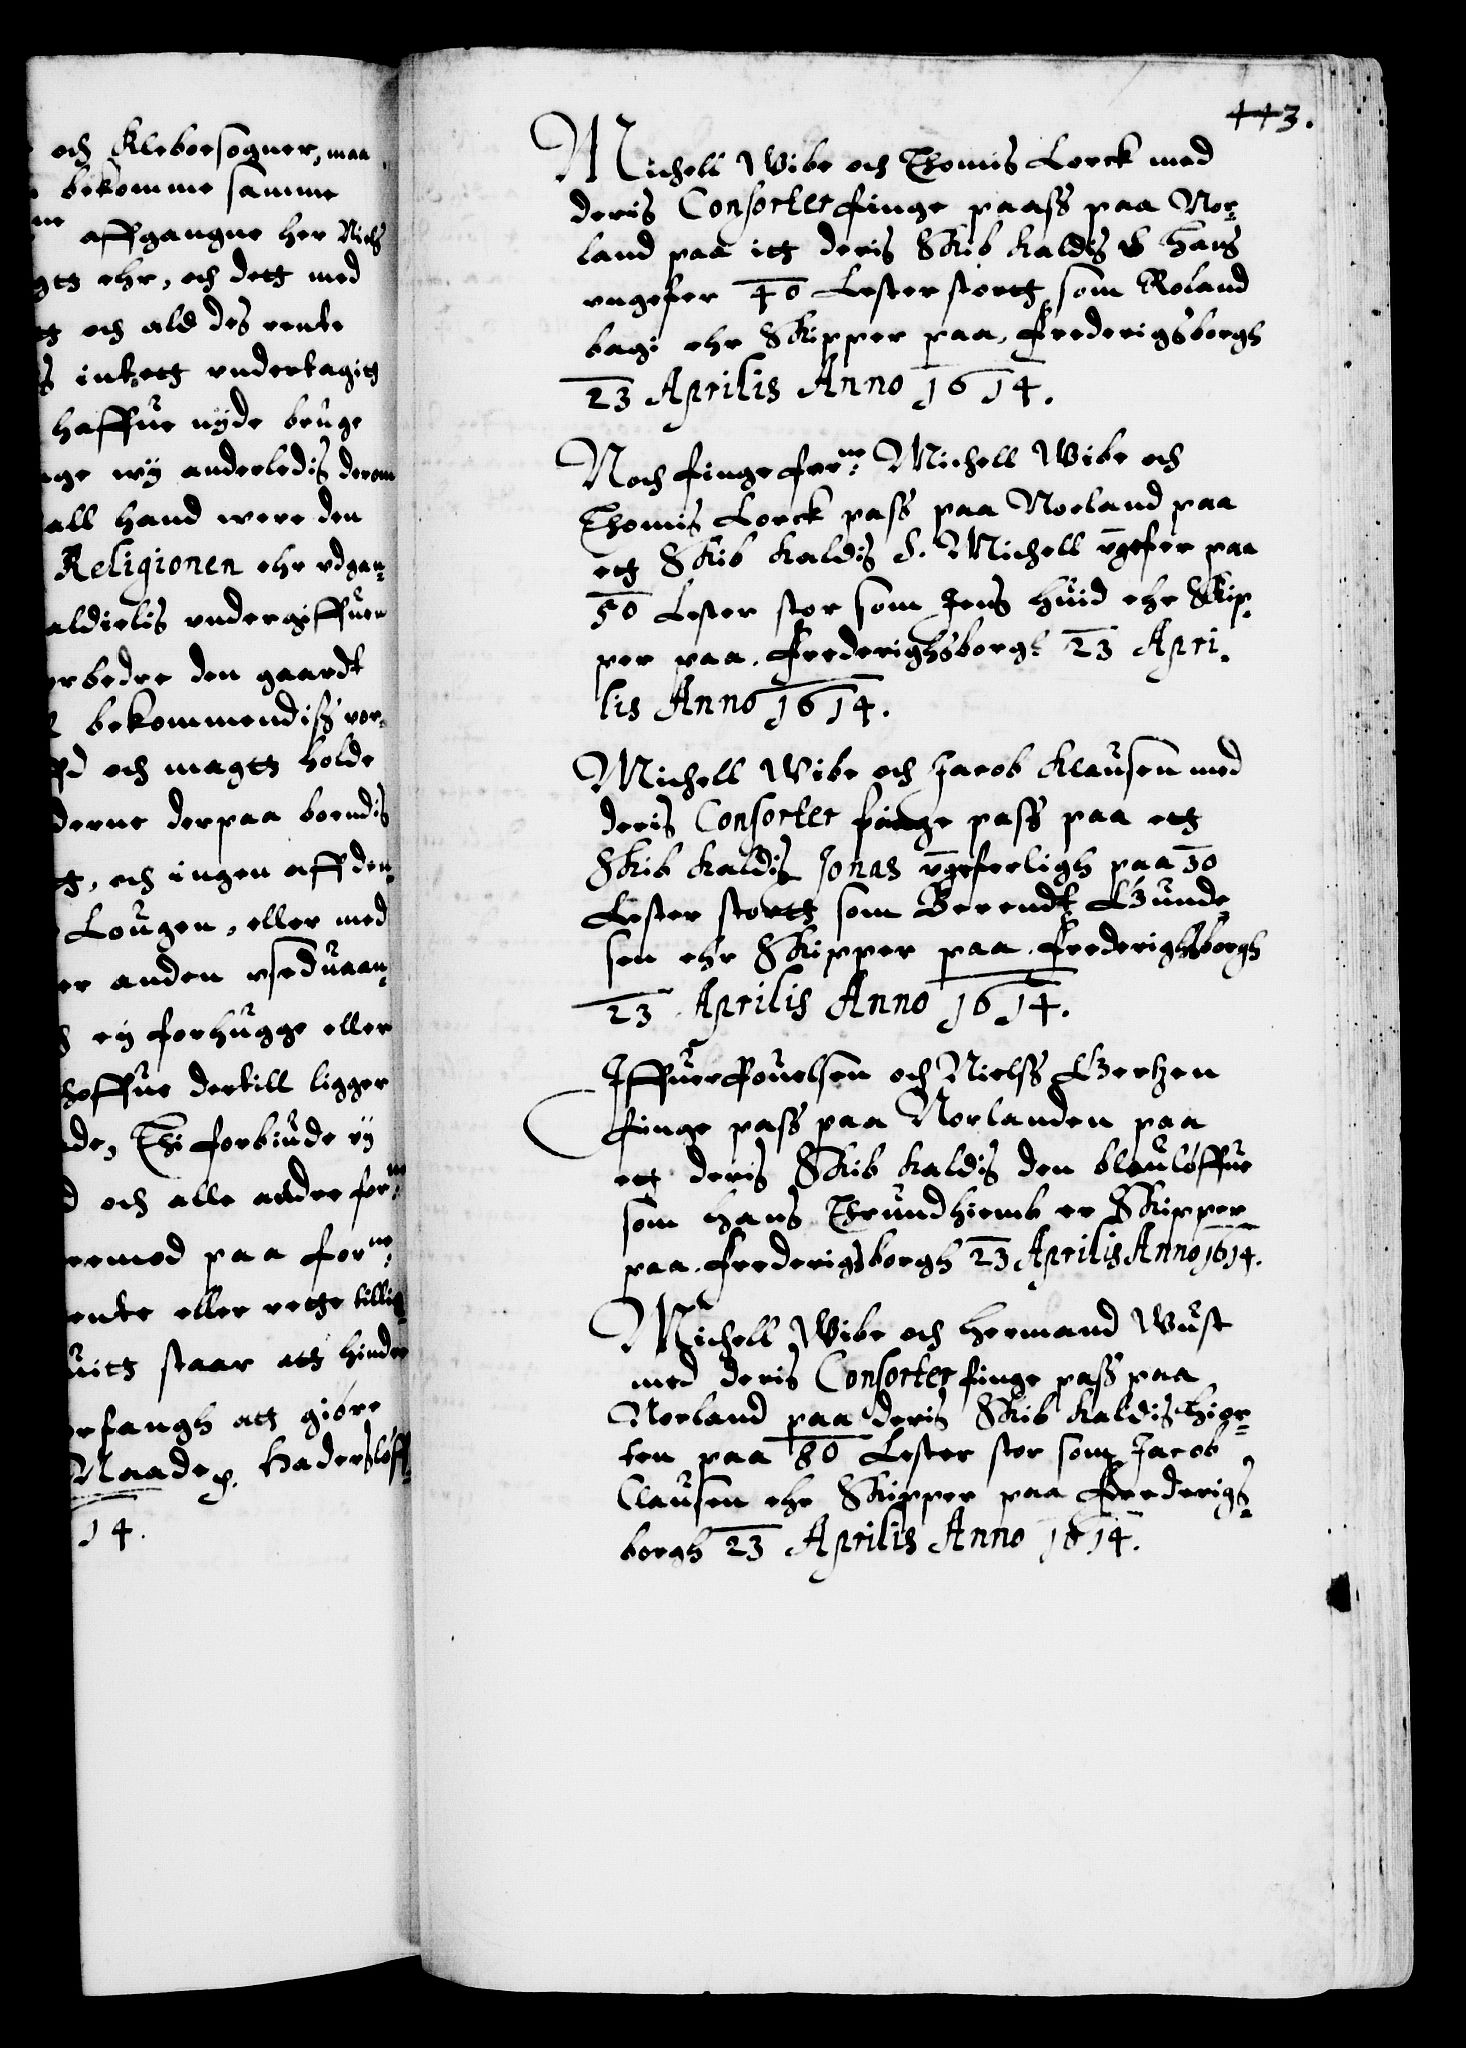 och Kleboesogner, maa
bekomme samme
affgangne her Niels
ehr, och dett med
och ald des rente
intett undertagitt
haffue nyde bruge
wy anderledis derom
all hand were den
Religionen ehr udgan-
aldielis undergiffuen
den gaardt
bekommendiss vor-
och magtt holde
derne derpaa boendis
och ingen aff den-
Lougen, eller med
anden usedvaan-
ey forhugge eller
dertill ligger
Thi forbiude vy
och alle andre forne:
paa forne:
eller rette tillig-
staar att hinder
att giøre
Naade p. Haderslöff-
14.
113.
Michell Wibe och Thomis Lorck med
deris Consorter finge paass paa Nor-
land paa itt deris Skib kaldis S Hans
ungefer 40 Lester stortt som Roland
bagi ehr Skipper paa. Frederigsborgh
23 Aprilis Anno 1614.
Noch finge forne: Michell Wibe och
Thomis Lorck pass paa Norland paa
ett Skib kaldis S. Michell ungefer paa
50 Lester stor som Jens Huid ehr Skip-
per paa. Frederighsborgh 23 Apri-
lis Anno 1614.
Michell Wibe och Jacob Klausen med
deris Consorter finge pass paa ett
Skib kaldis Jonas ungeferligh paa 30
Lester stortt som Berendt Gunde-
sen ehr Skipper paa. Frederighsborgh
23 Aprilis Anno 1614.
Iffuer Pouelsen och Nielss Gertzen
finge pass paa Norlanden paa
ett deris Skib kaldis den blauløffue
som Hans Thrundhiemb er Skipper
paa. Frederigsborgh 23 Aprilis Anno 1614.
Michell Wibe och Hermand Wust
med deris Consorter finge pass paa
Norland paa deris Skib kaldis Hior-
ten paa 80 Lester stor som Jacob
Clausen ehr Skipper paa Frederigs-
borgh 23 Aprilis Anno 1614.